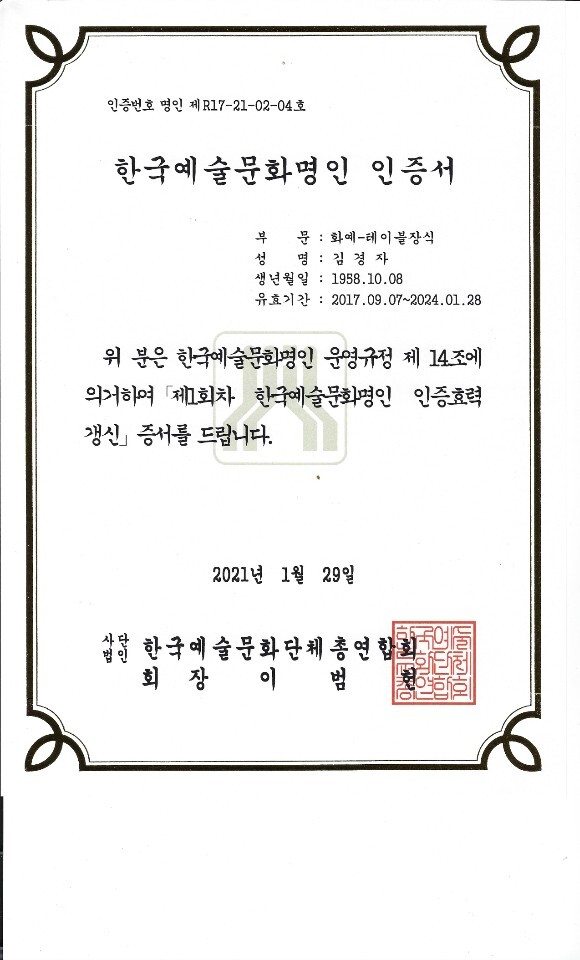 인증번호 명인 제R17-21-02-04호
한국예술문화명인 인증서
부 문 : 화예-테이블장식
성 명 : 김 경 자
생년월일 : 1958.10.08
유효기간 : 2017.09.07~2024.01.28
위 분은 한국예술문화명인 운영규정 제 14조에
의거하여 「제1회차 한국예술문화명인 인증효력
갱신」 증서를 드립니다.
2021년 1월 29일
사단법인 한국예술문화단체총연합회
회 장 이 범 헌